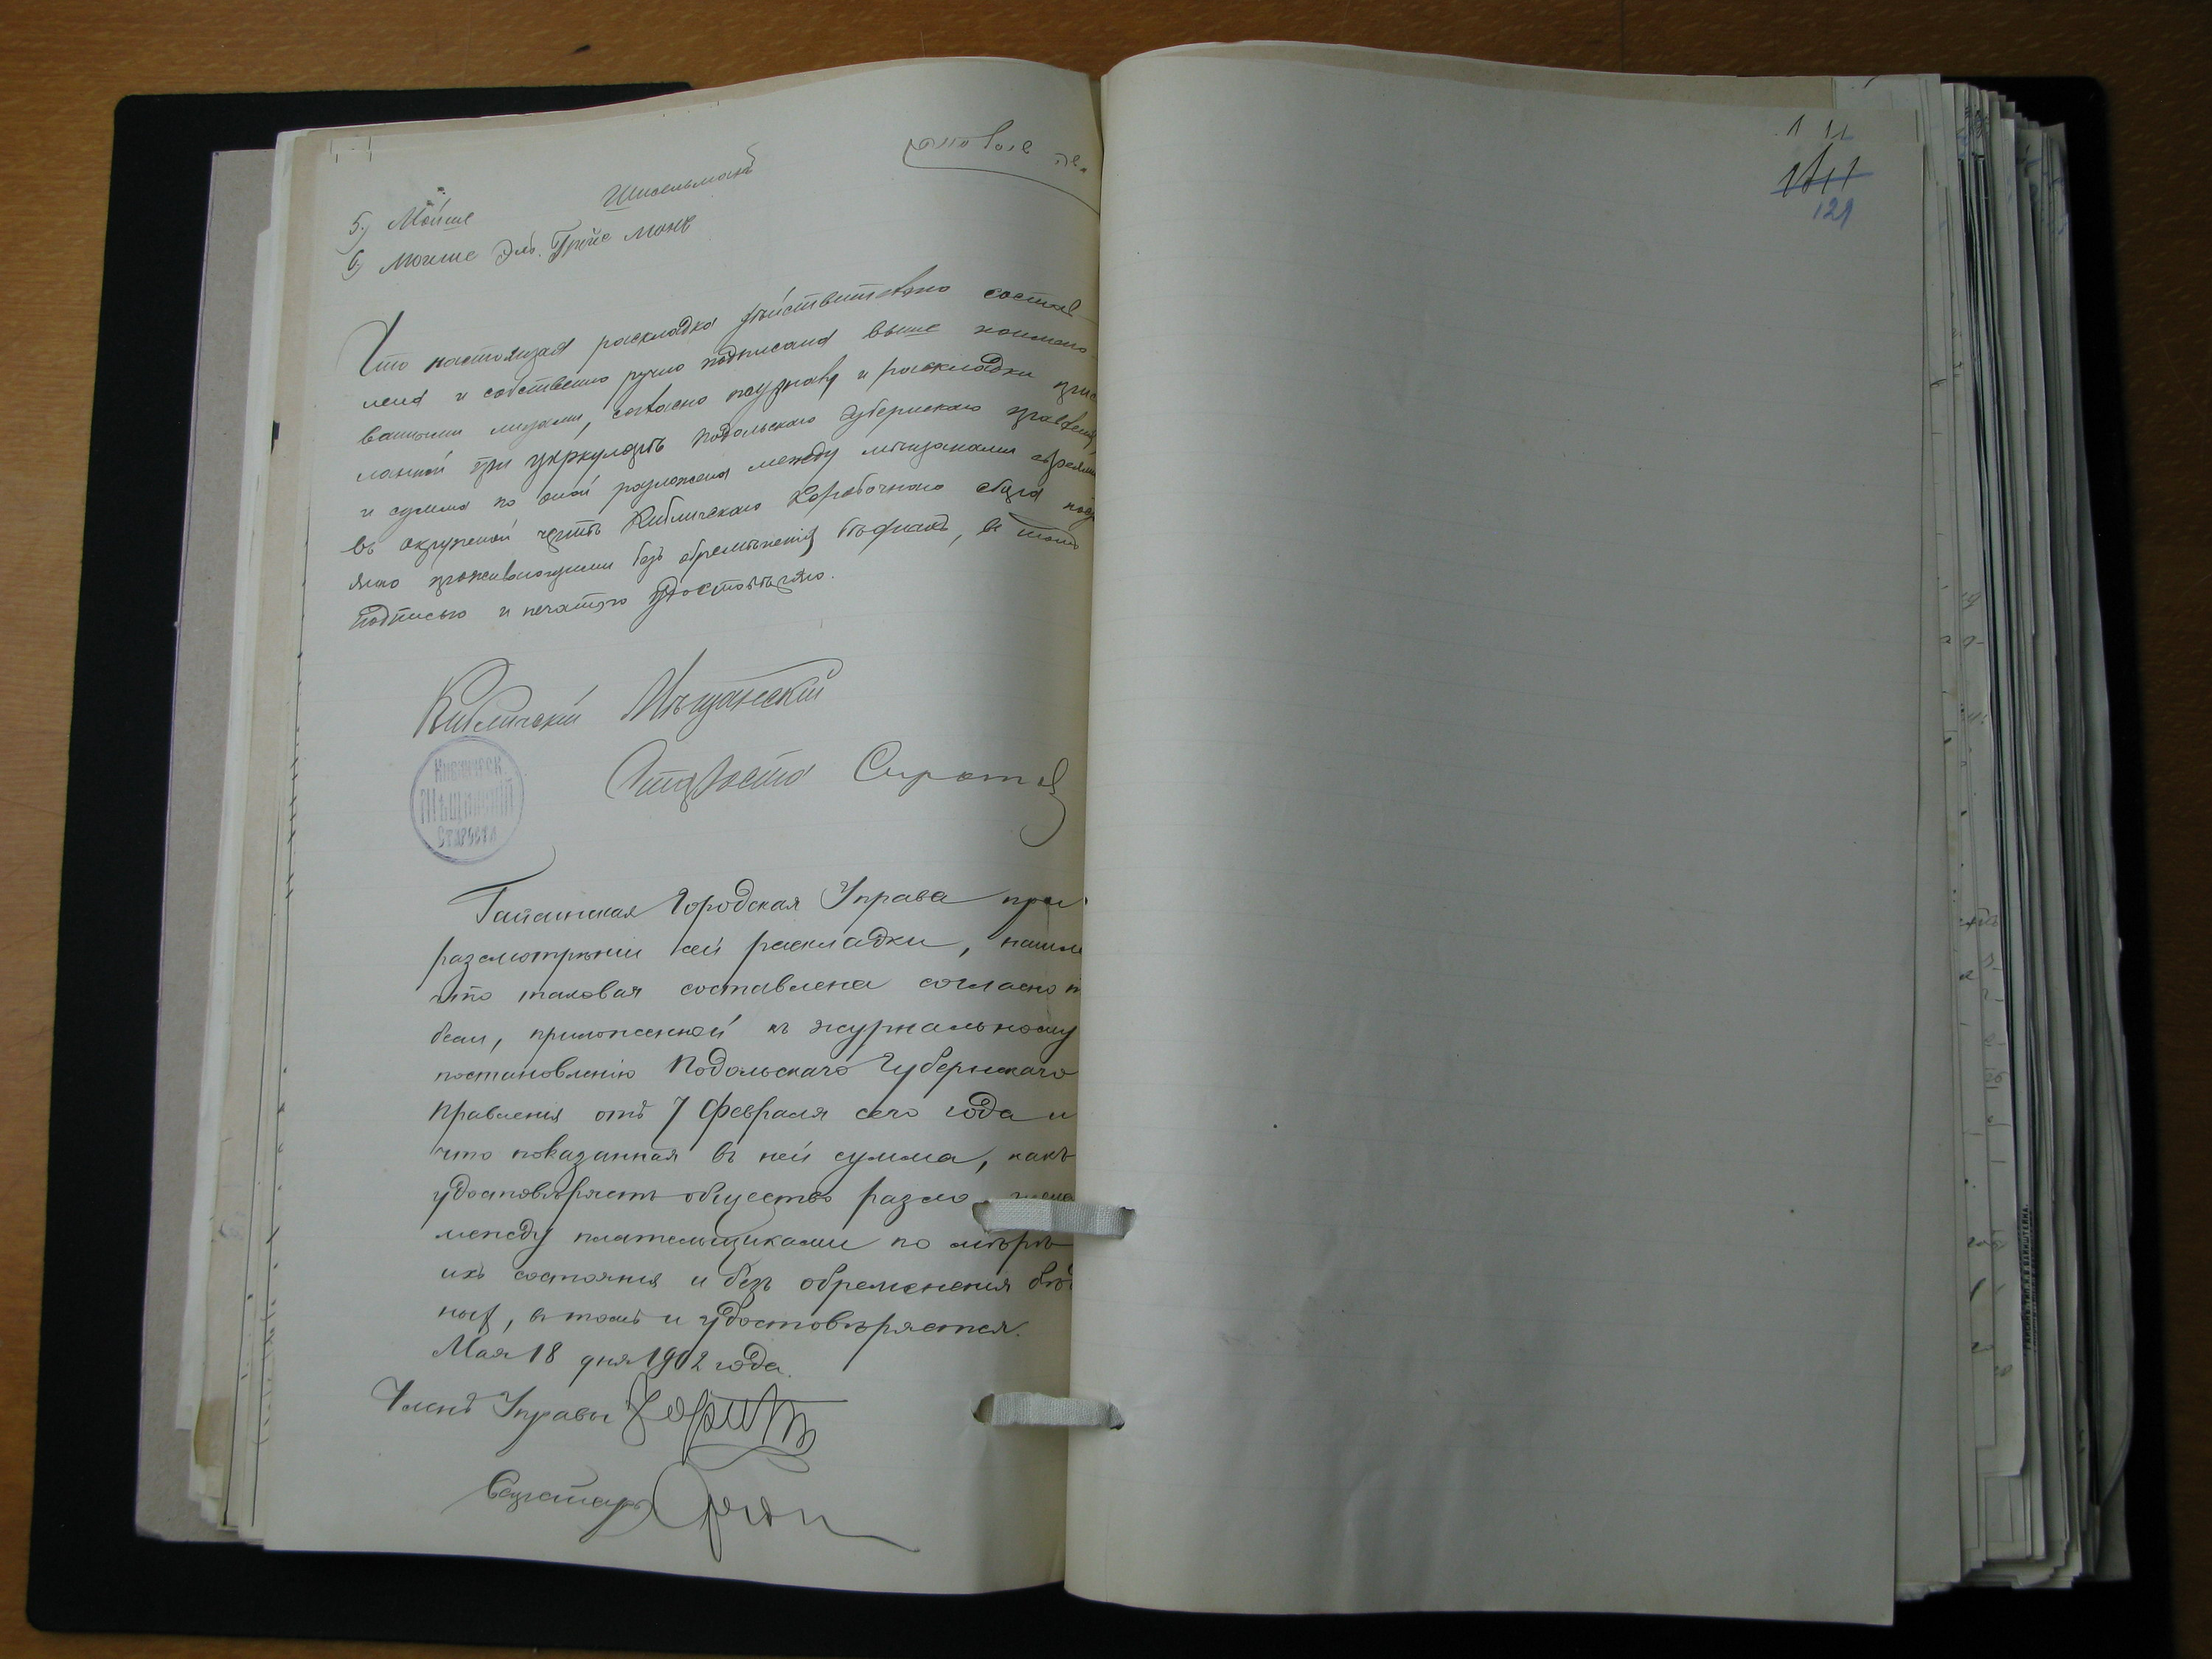 5) Мойше Шисельманъ
6) Мойше Эль. Гройсманъ
Что настоящая раскладка дѣйствительно состав-
лена и собственно ручно подписана выше наимено-
ванными лицами, согласно и раскладки прис
ланной при циркулярѣ Подольскаго Губернскаго Правленія,
и сумма по оной разложена между мѣщанами евреями
въ окружной чертѣ Кибличскаго Коробочнаго сбора
проживающими безъ обремѣненія бѣдныхъ, въ томъ
подписью и печатью удостовѣряю.
Кибличскій Мѣщанскій
Староста Сирота
Кибличск.
Мѣщанскій
Староста
Гайсинская Городская Управа при
разсмотрѣніи сей раскладки, нашла
что таковая составлена согласно
бели, приложенной къ журнальному
постановленію Подольскаго Губернскаго
Правленія отъ 7 Февраля сего года и
что показанная въ ней сумма, какъ
удостовѣряетъ общество разложена
между плательщиками по мѣрѣ
ихъ состоянія и безъ обремененія бѣд
ныхъ, въ томъ и удостовѣряется.
Мая 18 дня 1902 года.
Членъ Управы
Секретарь
121